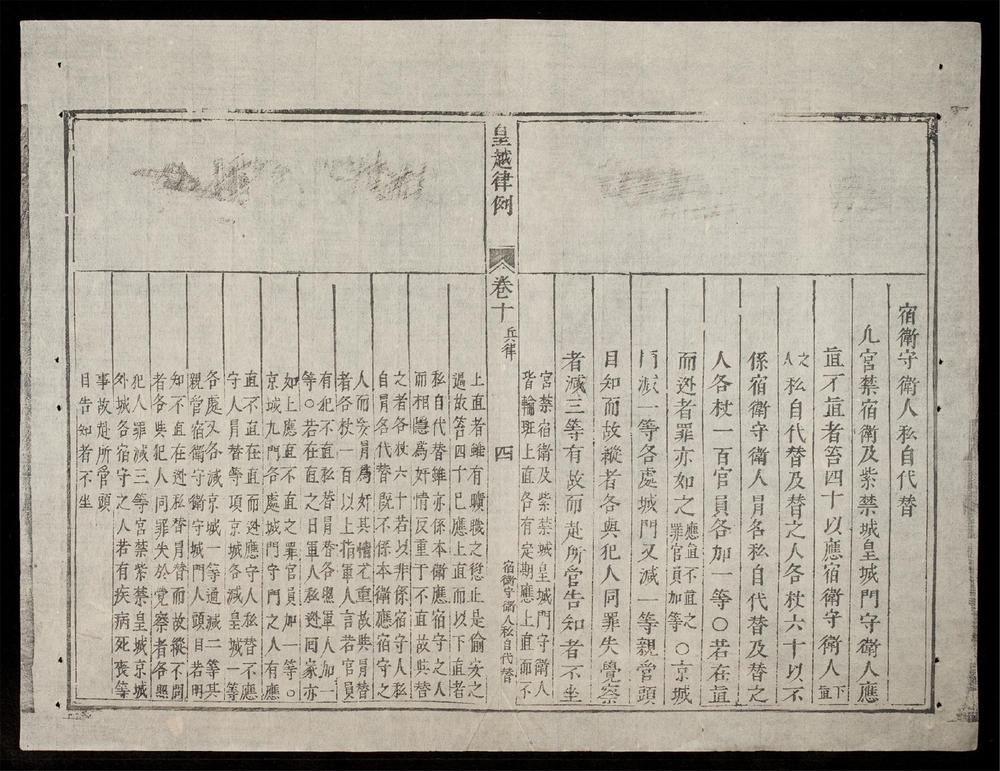 宿衛守衛人私自代替
凡宮禁宿衛及紫禁城皇城門守衛人應
直不直者笞四十以應宿衛守衛人下直
之人私自代替及替之人各杖六十以不
係宿衛守衛人冐名私自代替及替之
人各杖一百官員各加一等〇若在直
而逃者罪亦如之應直不直之罪官員加等〇京城
門减一等各處城門又减一等親管頭
目知而故縱者各與犯人同罪失覺察
者减三等有故而赴所管告知者不坐
宮禁宿衛及紫禁城皇城門守衛人
皆輪班上直各有定期應上直而不
皇越律例
卷十
兵律
四
宿衛守衛人私自代替
上直者雖有曠職之愆止是偷安之
過故笞四十已應上直而以下直者
私自代替雖亦係本衛應宿守之人
而相隱爲奸情反重于不直故與替
之者各杖六十若以非係宿守人私
自冐名代替既不係本衛應宿守之
人而妄冐爲奸其情尤重故與冐替
者各杖一百以上指軍人言若官員
有犯不直私替冐替各照軍人加一
等〇若在直之日軍人私逃回家亦
如上應直不直之罪官員加一等〇
京城九門各處城門守門之人有應
直不直在直而逃應守人私替不應
守人冐替等項京城各減皇城一等
各處又各減京城一等通減二等其
親管宿衛守衛守城門人頭目若明
知不直在逃私替冐替而故縱不問
者各與犯人同罪失於覺察者各照
犯人罪減三等宮禁紫禁皇城京城
外城各宿守之人若有疾病死喪等
事故赴所管頭
目告知者不坐